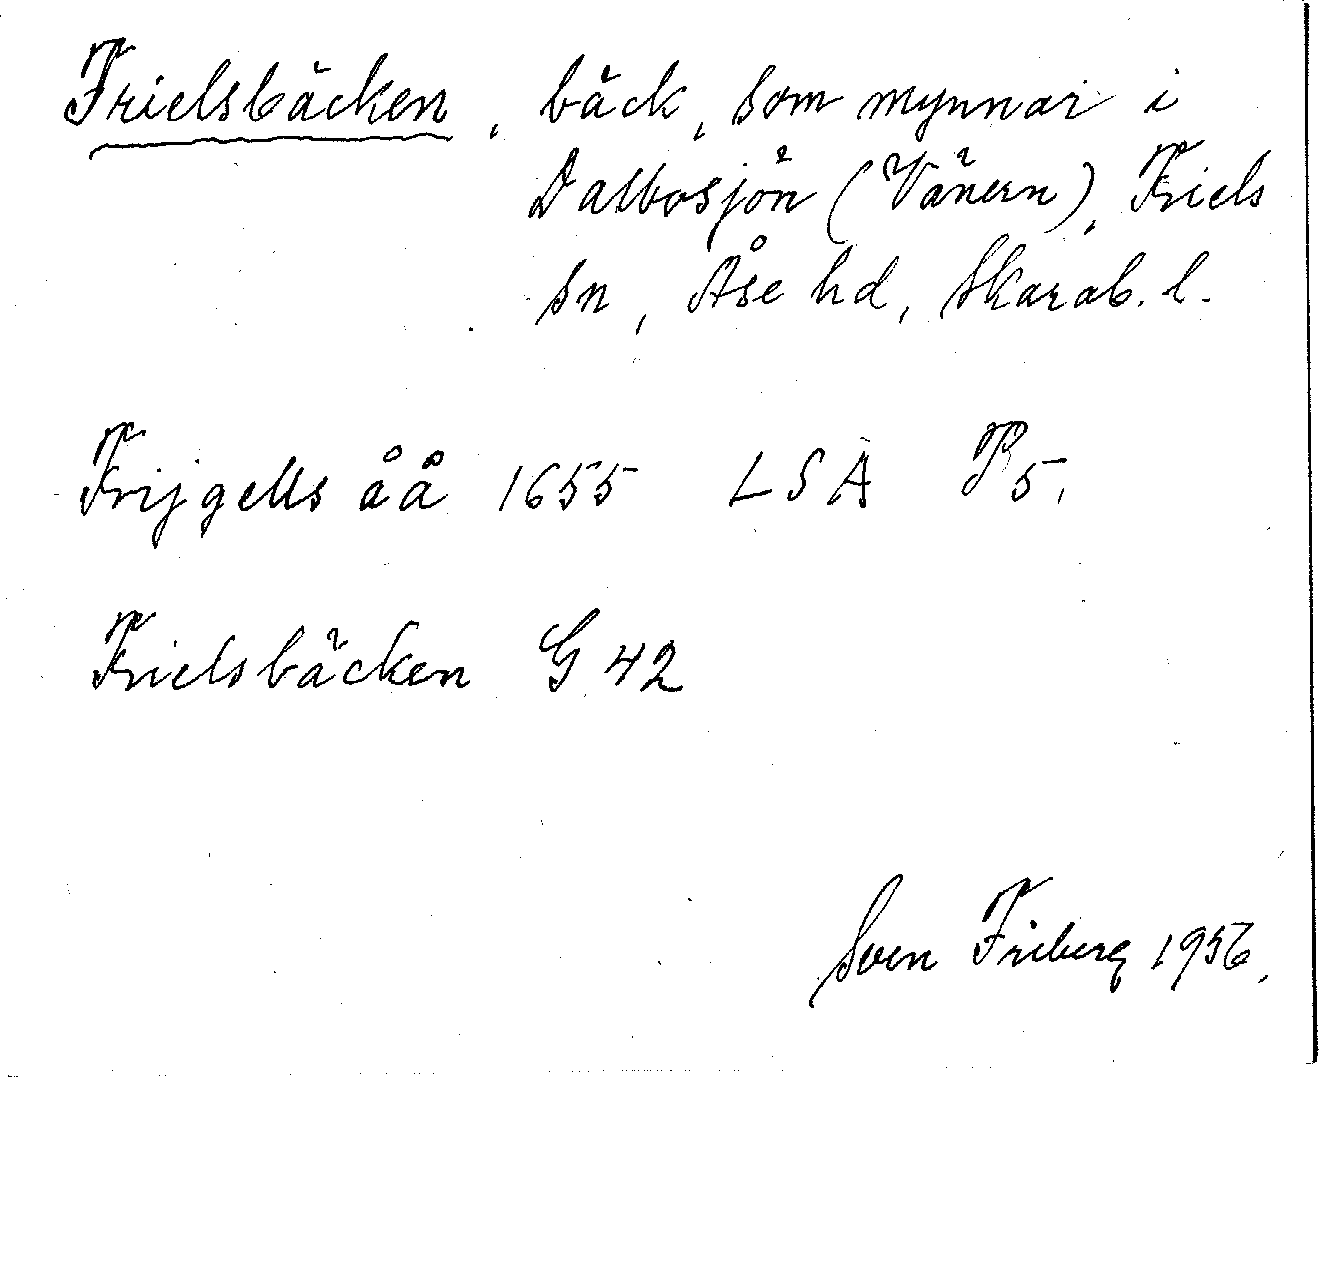 Frielsbäcken, bäck, som mynnar i
Dalbosjön (Vänern), Friels
sn, Åse hd, Skarab. l.
Frijgells åå 1655 LSA P5,
Frielsbäcken G 42
Sven Friberg 1956.